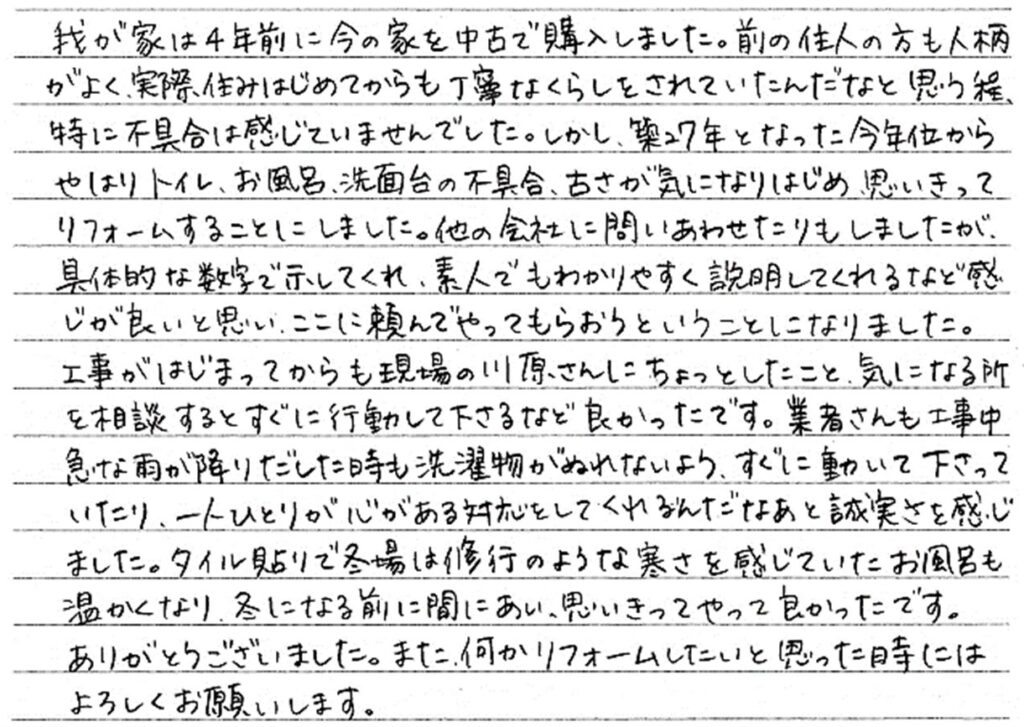 我が家は4年前に今の家を中古で購入しました。前の住人の方も人柄
がよく、実際、住みはじめてからも丁寧なくらしをされていたんだなと思う程、
特に不具合は感じていませんでした。しかし、築27年となった今年位から
やはりトイレ、お風呂、洗面台の不具合、古さが気になりはじめ、思いきって
リフォームすることにしました。他の会社に問いあわせたりもしましたが、
具体的な数字で示してくれ、素人でもわかりやすく説明してくれるなど感
じが良いと思い、ここに頼んでやってもらおうということになりました。
工事がはじまってからも現場の川原さんにちょっとしたこと、気になる所
を相談するとすぐに行動して下さるなど良かったです。業者さんも工事中
急な雨が降りだした時も洗濯物がぬれないよう、すぐに動いて下さって
いたり、一人ひとりが心がある対応をしてくれるんだなあと誠実さを感じ
ました。タイル貼りで冬場は修行のような寒さを感じていたお風呂も
温かくなり、冬になる前に間にあい、思いきってやって良かったです。
ありがとうございました。また、何かリフォームしたいと思った時には
よろしくお願いします。